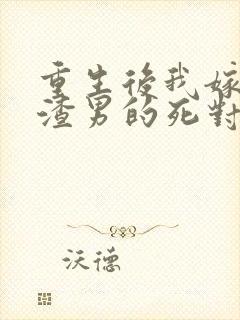 重生後我嫁
渣男的死對
沃德